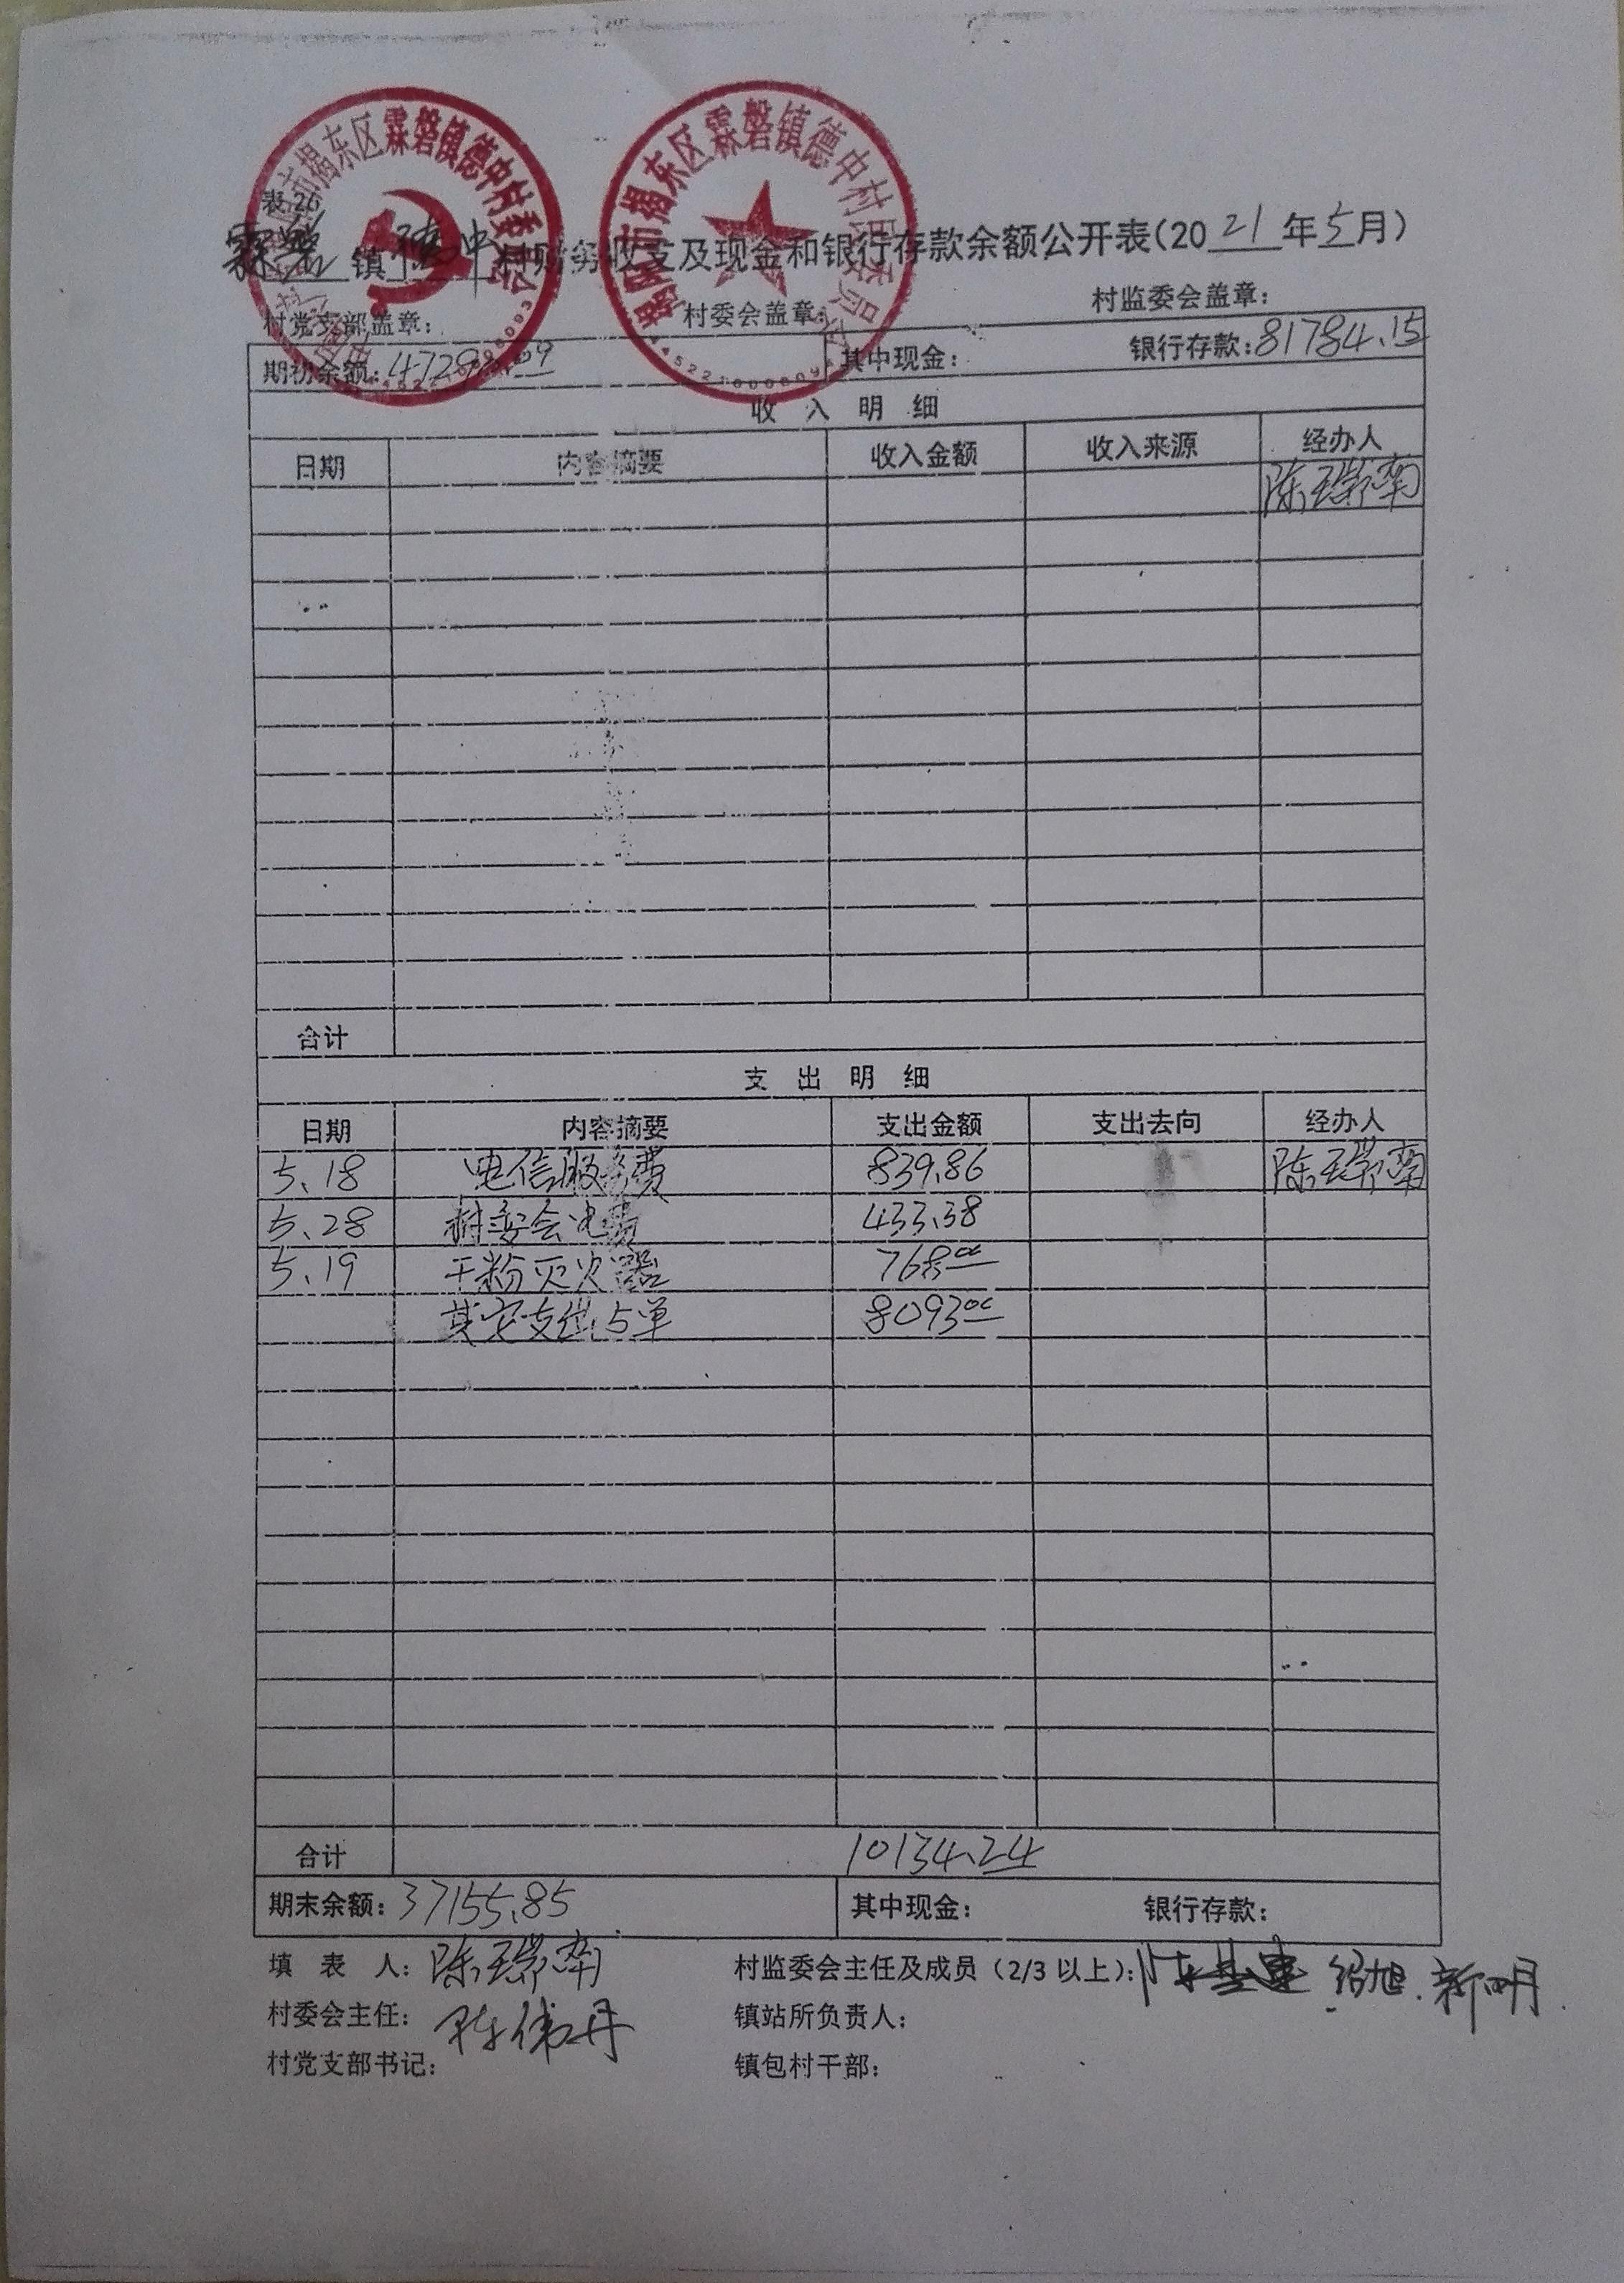 揭东区霖磐镇德中村委员会
揭阳市揭东区霖磐镇德中村民委员会
表 26
霖磐 镇 德中 村财务收支及现金和银行存款余额公开表(20 21 年 5 月)
村党支部盖章: 村委会盖章: 村监委会盖章:
期初余额: 其中现金: 银行存款:81784.15
收 入 明 细
日期 内容摘要 收入金额 收入来源 经办人
陈
合计
支 出 明 细
日期 内容摘要 支出金额 支出去向 经办人
5.18 电信服务费 839.86 陈
5.28 村委会电费 433.38
5.19 干粉灭火器 768.00
其它支出5单 8093.00
合计 10134.24
期末余额: 37155.85 其中现金: 银行存款:
填 表 人: 陈 村监委会主任及成员(2/3 以上): 绍旭. 新明.
村委会主任: 陈伟丹 镇站所负责人:
村党支部书记: 镇包村干部: